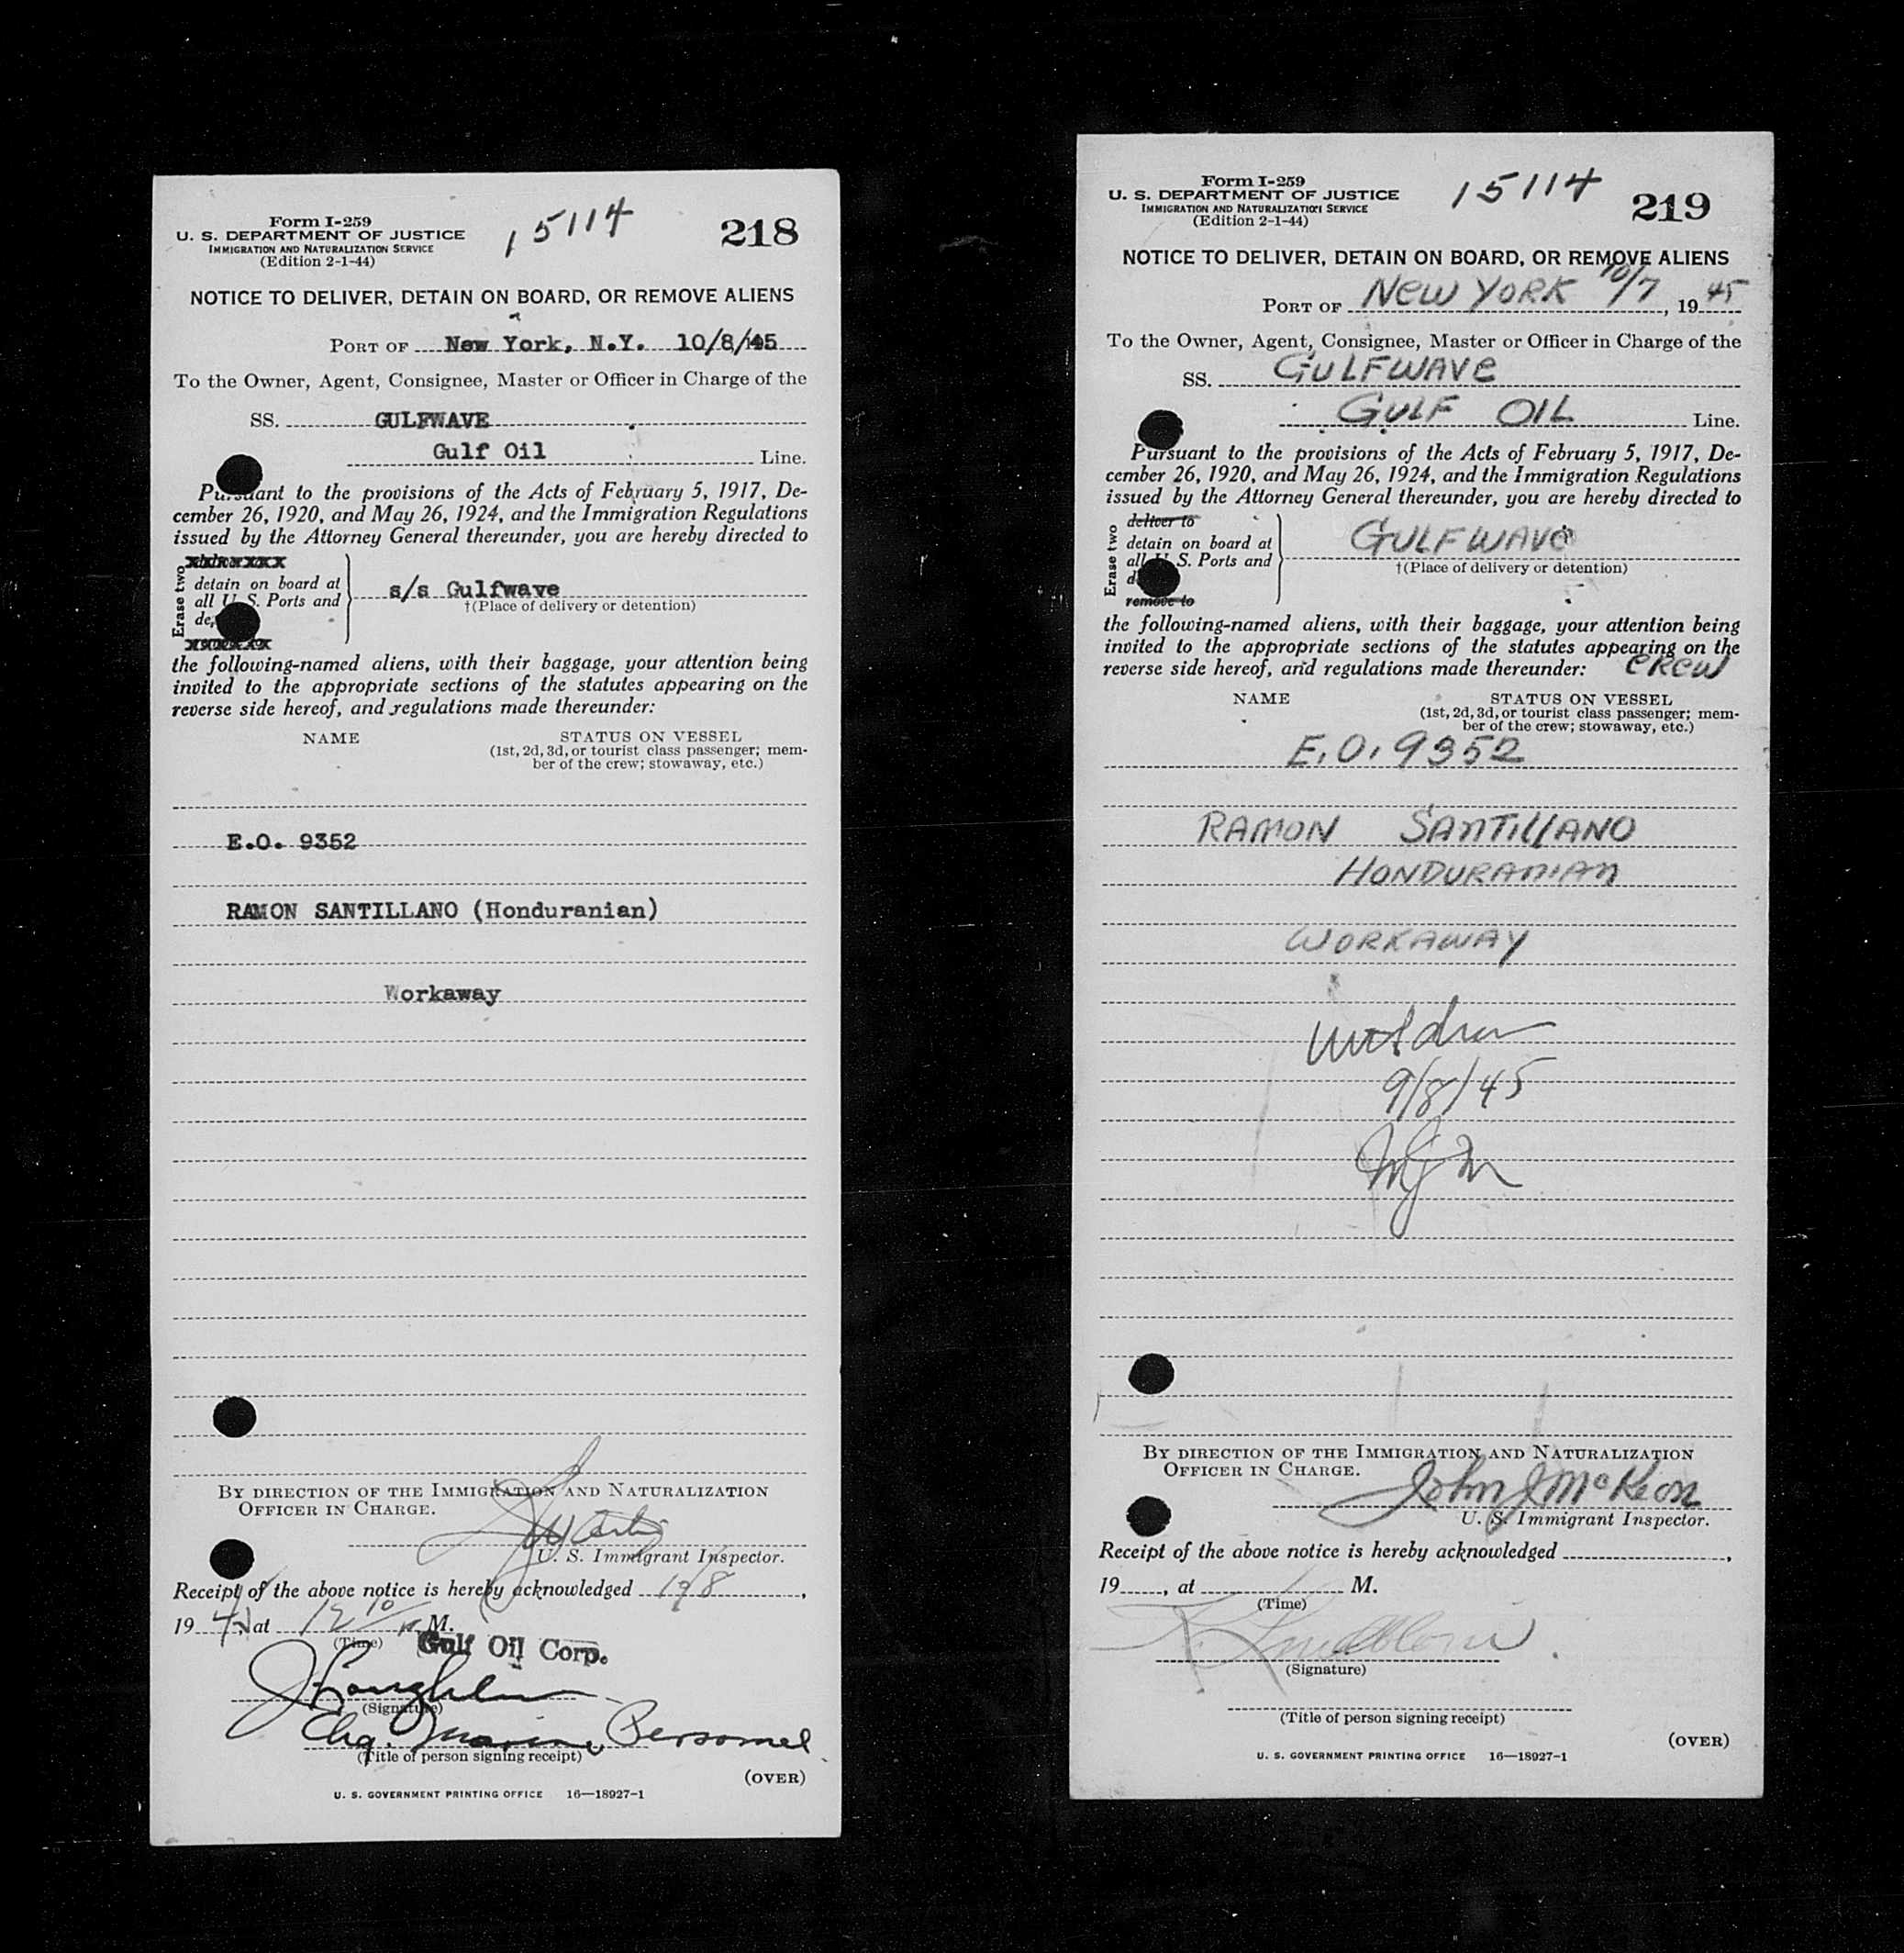 Form I-259
U. S. DEPARTMENT OF JUSTICE
IMMIGRATION AND NATURALIZATION SERVICE
(Edition 2-1-44)
15114
218
NOTICE TO DELIVER, DETAIN ON BOARD, OR REMOVE ALIENS
PORT OF New York, N.Y. 10/8/45
To the Owner, Agent, Consignee, Master or Officer in Charge of the
SS. GULFWAVE
Gulf Oil Line.
Pursuant to the provisions of the Acts of February 5, 1917, De-
cember 26, 1920, and May 26, 1924, and the Immigration Regulations
issued by the Attorney General thereunder, you are hereby directed to
Erase two
detain on board at
all U. S. Ports and
s/s Gulfwave
†(Place of delivery or detention)
the following-named aliens, with their baggage, your attention being
invited to the appropriate sections of the statutes appearing on the
reverse side hereof, and regulations made thereunder:
NAME STATUS ON VESSEL
(1st, 2d, 3d, or tourist class passenger; mem-
ber of the crew; stowaway, etc.)
E.O. 9352
RAMON SANTILLANO (Honduranian)
Workaway
BY DIRECTION OF THE IMMIGRATION AND NATURALIZATION
OFFICER IN CHARGE.
U. S. Immigrant Inspector.
Receipt of the above notice is hereby acknowledged 10/8,
19 at 12 10 M.
(Time)
Gulf Oil Corp.
J Coughlin
(Signature)
Chg. Marine Personnel
(Title of person signing receipt)
(OVER)
U. S. GOVERNMENT PRINTING OFFICE 16—18927-1
Form I-259
U. S. DEPARTMENT OF JUSTICE
IMMIGRATION AND NATURALIZATION SERVICE
(Edition 2-1-44)
15114
219
NOTICE TO DELIVER, DETAIN ON BOARD, OR REMOVE ALIENS
PORT OF NEW YORK 10/7, 1945
To the Owner, Agent, Consignee, Master or Officer in Charge of the
SS. GULFWAVE
GULF OIL Line.
Pursuant to the provisions of the Acts of February 5, 1917, De-
cember 26, 1920, and May 26, 1924, and the Immigration Regulations
issued by the Attorney General thereunder, you are hereby directed to
Erase two
deliver to
detain on board at
all U. S. Ports and
remove to
GULFWAVE
†(Place of delivery or detention)
the following-named aliens, with their baggage, your attention being
invited to the appropriate sections of the statutes appearing on the
reverse side hereof, and regulations made thereunder: CREW
NAME STATUS ON VESSEL
(1st, 2d, 3d, or tourist class passenger; mem-
ber of the crew; stowaway, etc.)
E.O. 9352
RAMON SANTILLANO
HONDURANIAN
WORKAWAY
9/8/45
BY DIRECTION OF THE IMMIGRATION AND NATURALIZATION
OFFICER IN CHARGE.
John J McKeon
U. S. Immigrant Inspector.
Receipt of the above notice is hereby acknowledged ,
19 , at M.
(Time)
(Signature)
(Title of person signing receipt)
(OVER)
U. S. GOVERNMENT PRINTING OFFICE 16—18927-1